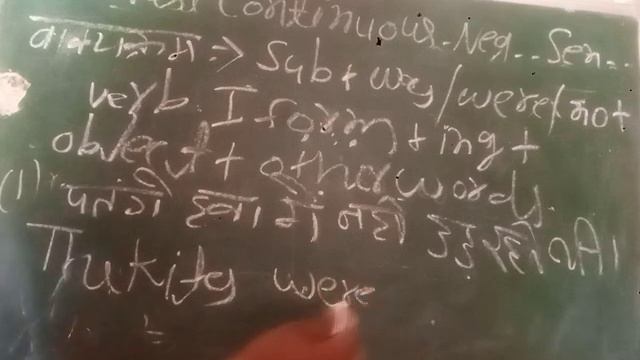 Continuous. Neg.. Sen..
वाक्यक्रम => Sub + was/were + not
verb I form + ing +
object + other words.
(1) पतंगे हवा में नही उड़ रही थी।
The kites were